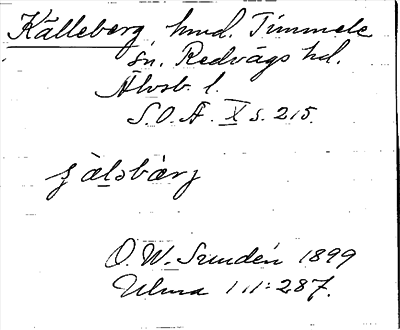 Källeberg, hmd. Timmele
sn. Redvägs hd.
Älvsb. l.
S.O.Ä. X s. 215.
jälsbärj
O. W. Sundén 1899
Ulma 111:287.